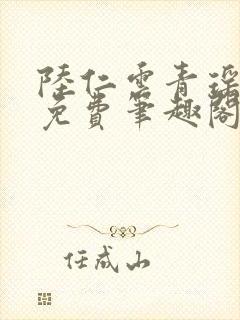 陸仁雲青瑤
免費筆趣閣
任成山